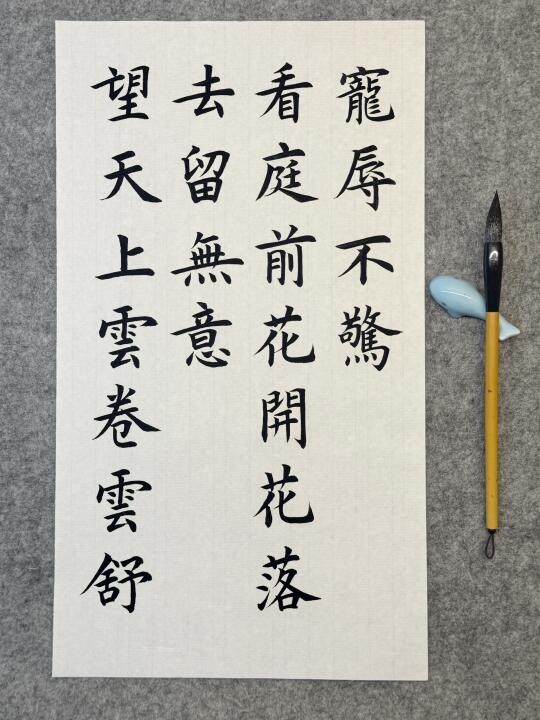 寵辱不驚
看庭前花開花落
去留無意
望天上雲卷雲舒